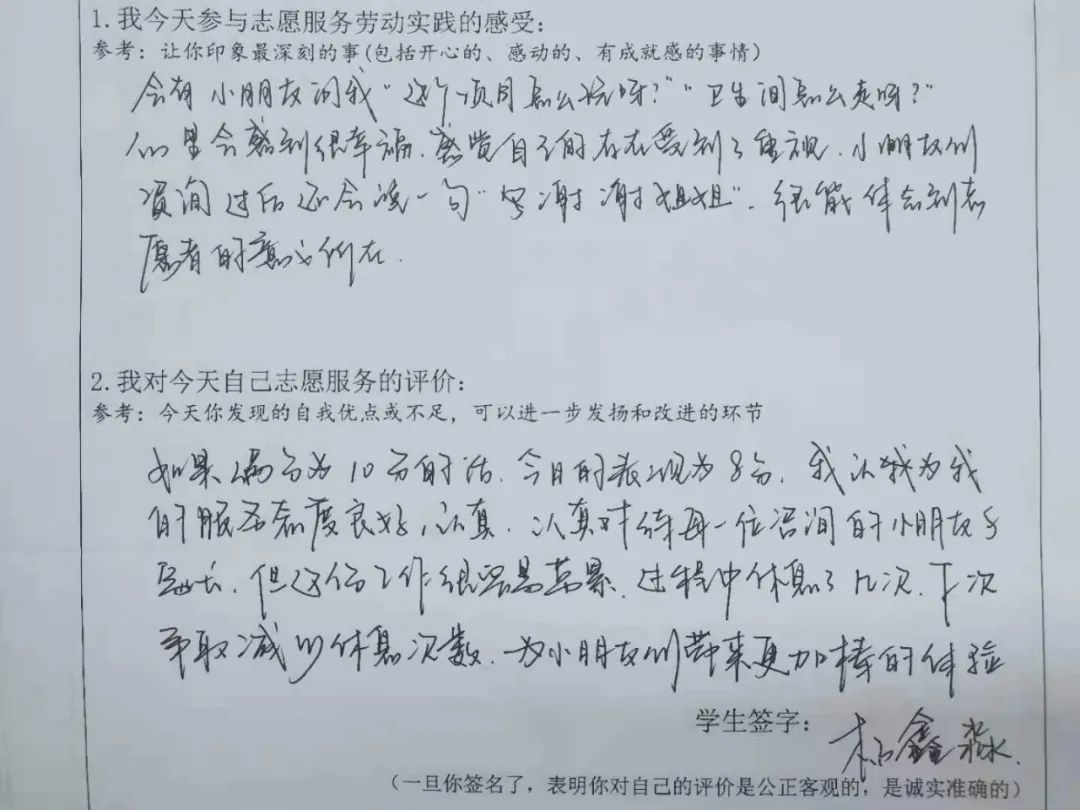 1.我今天参与志愿服务劳动实践的感受:
参考: 让你印象最深刻的事(包括开心的、感动的、有成就感的事情)
会有小朋友问我"这个项目怎么玩呀?""卫生间怎么走呀?"
心里会感到很幸福.感觉自己的存在受到了重视.小朋友们
询问过后还会说一句"谢谢姐姐".很能体会到志
愿者的意义所在.
2.我对今天自己志愿服务的评价:
参考: 今天你发现的自我优点或不足, 可以进一步发扬和改进的环节
如果满分为10分的话.今日的表现为8分.我认为我
的服务态度良好,认真.认真对待每一位咨询的小朋友
家长.但这份工作很容易劳累.过程中休息了几次.下次
争取减少休息次数.为小朋友们带来更加棒的体验
学生签字: 鑫淼
(一旦你签名了, 表明你对自己的评价是公正客观的, 是诚实准确的)